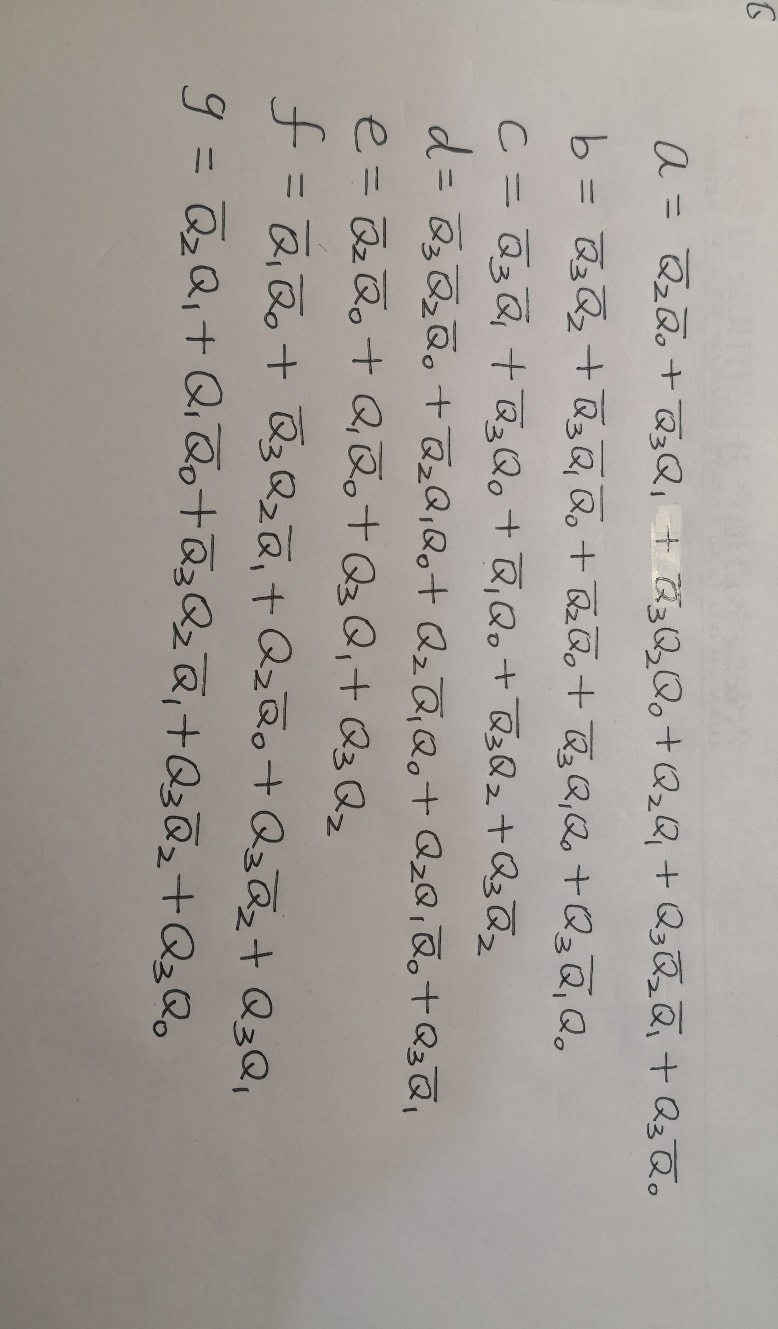 a = Q̅₂Q̅₀ + Q̅₃Q₁ + Q̅₃Q₂Q₀ + Q₂Q₁ + Q₃Q̅₂Q̅₁ + Q₃Q̅₀
b = Q̅₃Q̅₂ + Q̅₃Q̅₁Q̅₀ + Q̅₂Q̅₀ + Q̅₃Q₁Q₀ + Q₃Q̅₁Q₀
c = Q̅₃Q̅₁ + Q̅₃Q₀ + Q̅₁Q₀ + Q̅₃Q₂ + Q₃Q̅₂
d = Q̅₃Q̅₂Q̅₀ + Q̅₂Q₁Q₀ + Q₂Q̅₁Q₀ + Q₂Q₁Q̅₀ + Q₃Q̅₁
e = Q̅₂Q̅₀ + Q₁Q̅₀ + Q₃Q₁ + Q₃Q₂
f = Q̅₁Q̅₀ + Q̅₃Q₂Q̅₁ + Q₂Q̅₀ + Q₃Q̅₂ + Q₃Q₁
g = Q̅₂Q₁ + Q₁Q̅₀ + Q̅₃Q₂Q̅₁ + Q₃Q̅₂ + Q₃Q₀